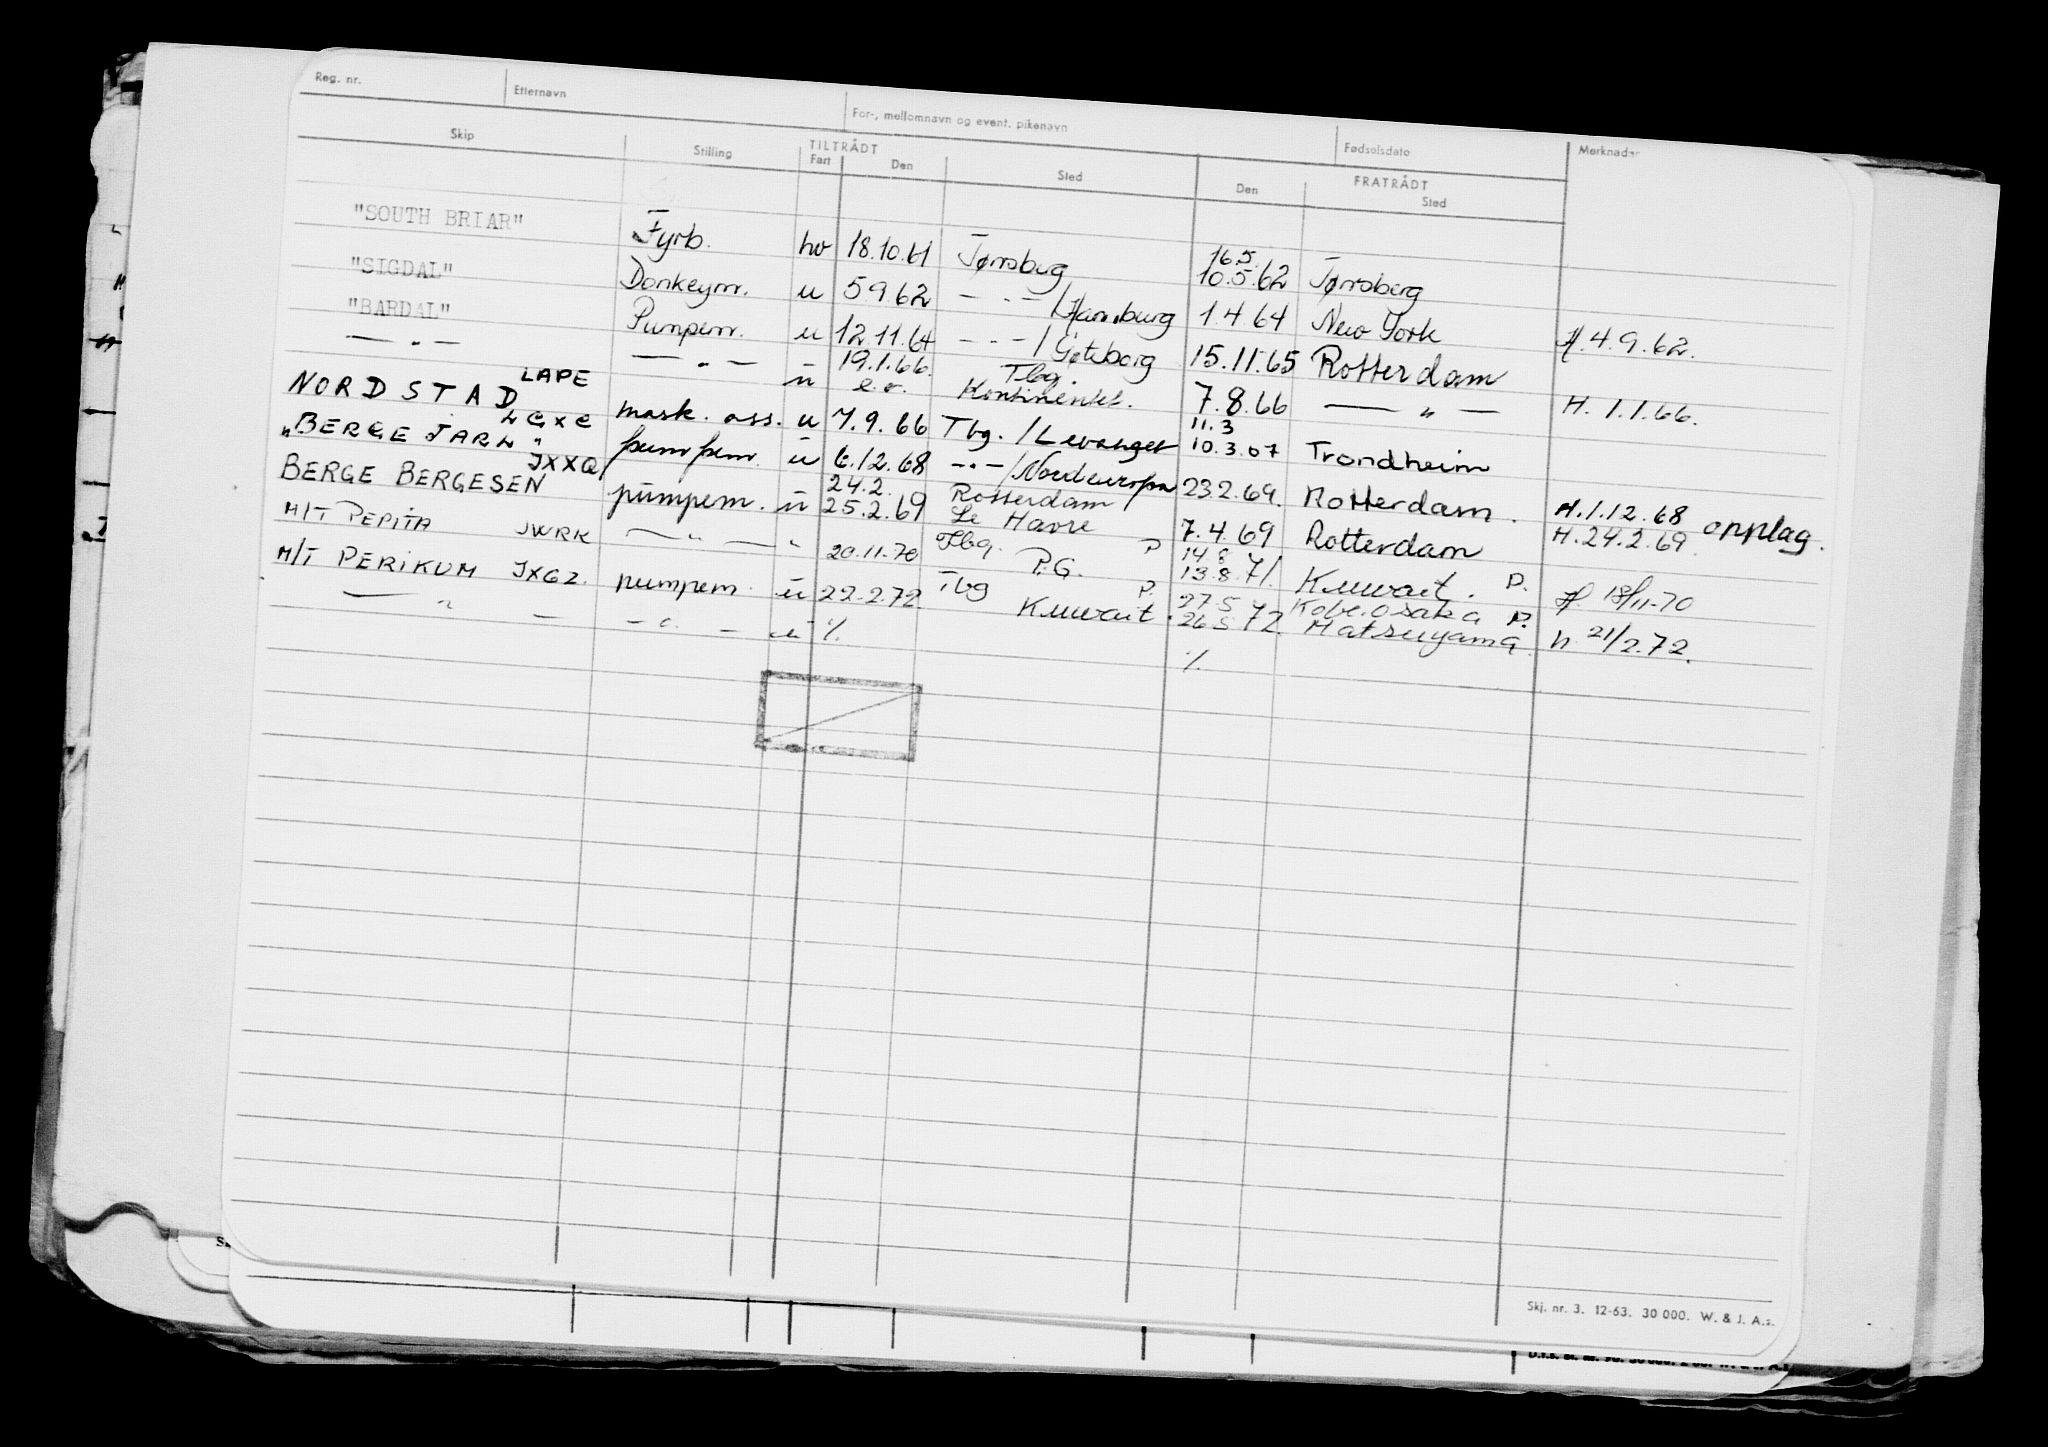 Reg. nr. Etternavn For-, mellomnavn og event. pikenavn Fødselsdato Merknader
Skip Stilling TILTRÅDT FRATRÅDT
Fart Den Sted Den Sted
"SOUTH BRIAR" Fyrb. hv 18.10.61 Tønsberg 16.5. 10.5.62 Tønsberg
"SIGDAL" Donkeym. u 5 9 62 — " — / Hamburg 1.4 64 New York H. 4.9.62.
"BARDAL" Pumpem. u 12.11.64 — " — / Gøteborg 15.11.65 Rotterdam
— " — — " — u 19.1.66. e.o. Tbg. Kontinentet. 7.8.66 — " — H. 1.1.66.
NORDSTAD LAPE mask. ass. u 7.9.66 Tbg. / Levanger 11.3 10.3.67 Trondheim
"BERGE JARL" LGXC pumpem. u 6.12.68 — " — / Nordeuropa 23.2.69. Rotterdam. H.1.12.68 opplag.
BERGE BERGESEN JXXQ pumpem. u 24.2. 25.2.69 Rotterdam / Le Havre 7.4.69 Rotterdam H.24.2.69
M/T PEPITA JWRK — " — " 20.11.70 Tbg. P.G. P 14 8 13.8.71. Kuwait. P. H. 18/11-70
M/T PERIKUM JXGZ. pumpem. u 22.2.72. Tbg Kuwait. P. 27 5 26 5 72. Kobe. Osaka P. Matsuyama. h 21/2.72.
— " — — " — u % %
Skj. nr. 3. 12-63. 30 000. W. & J. A.s.